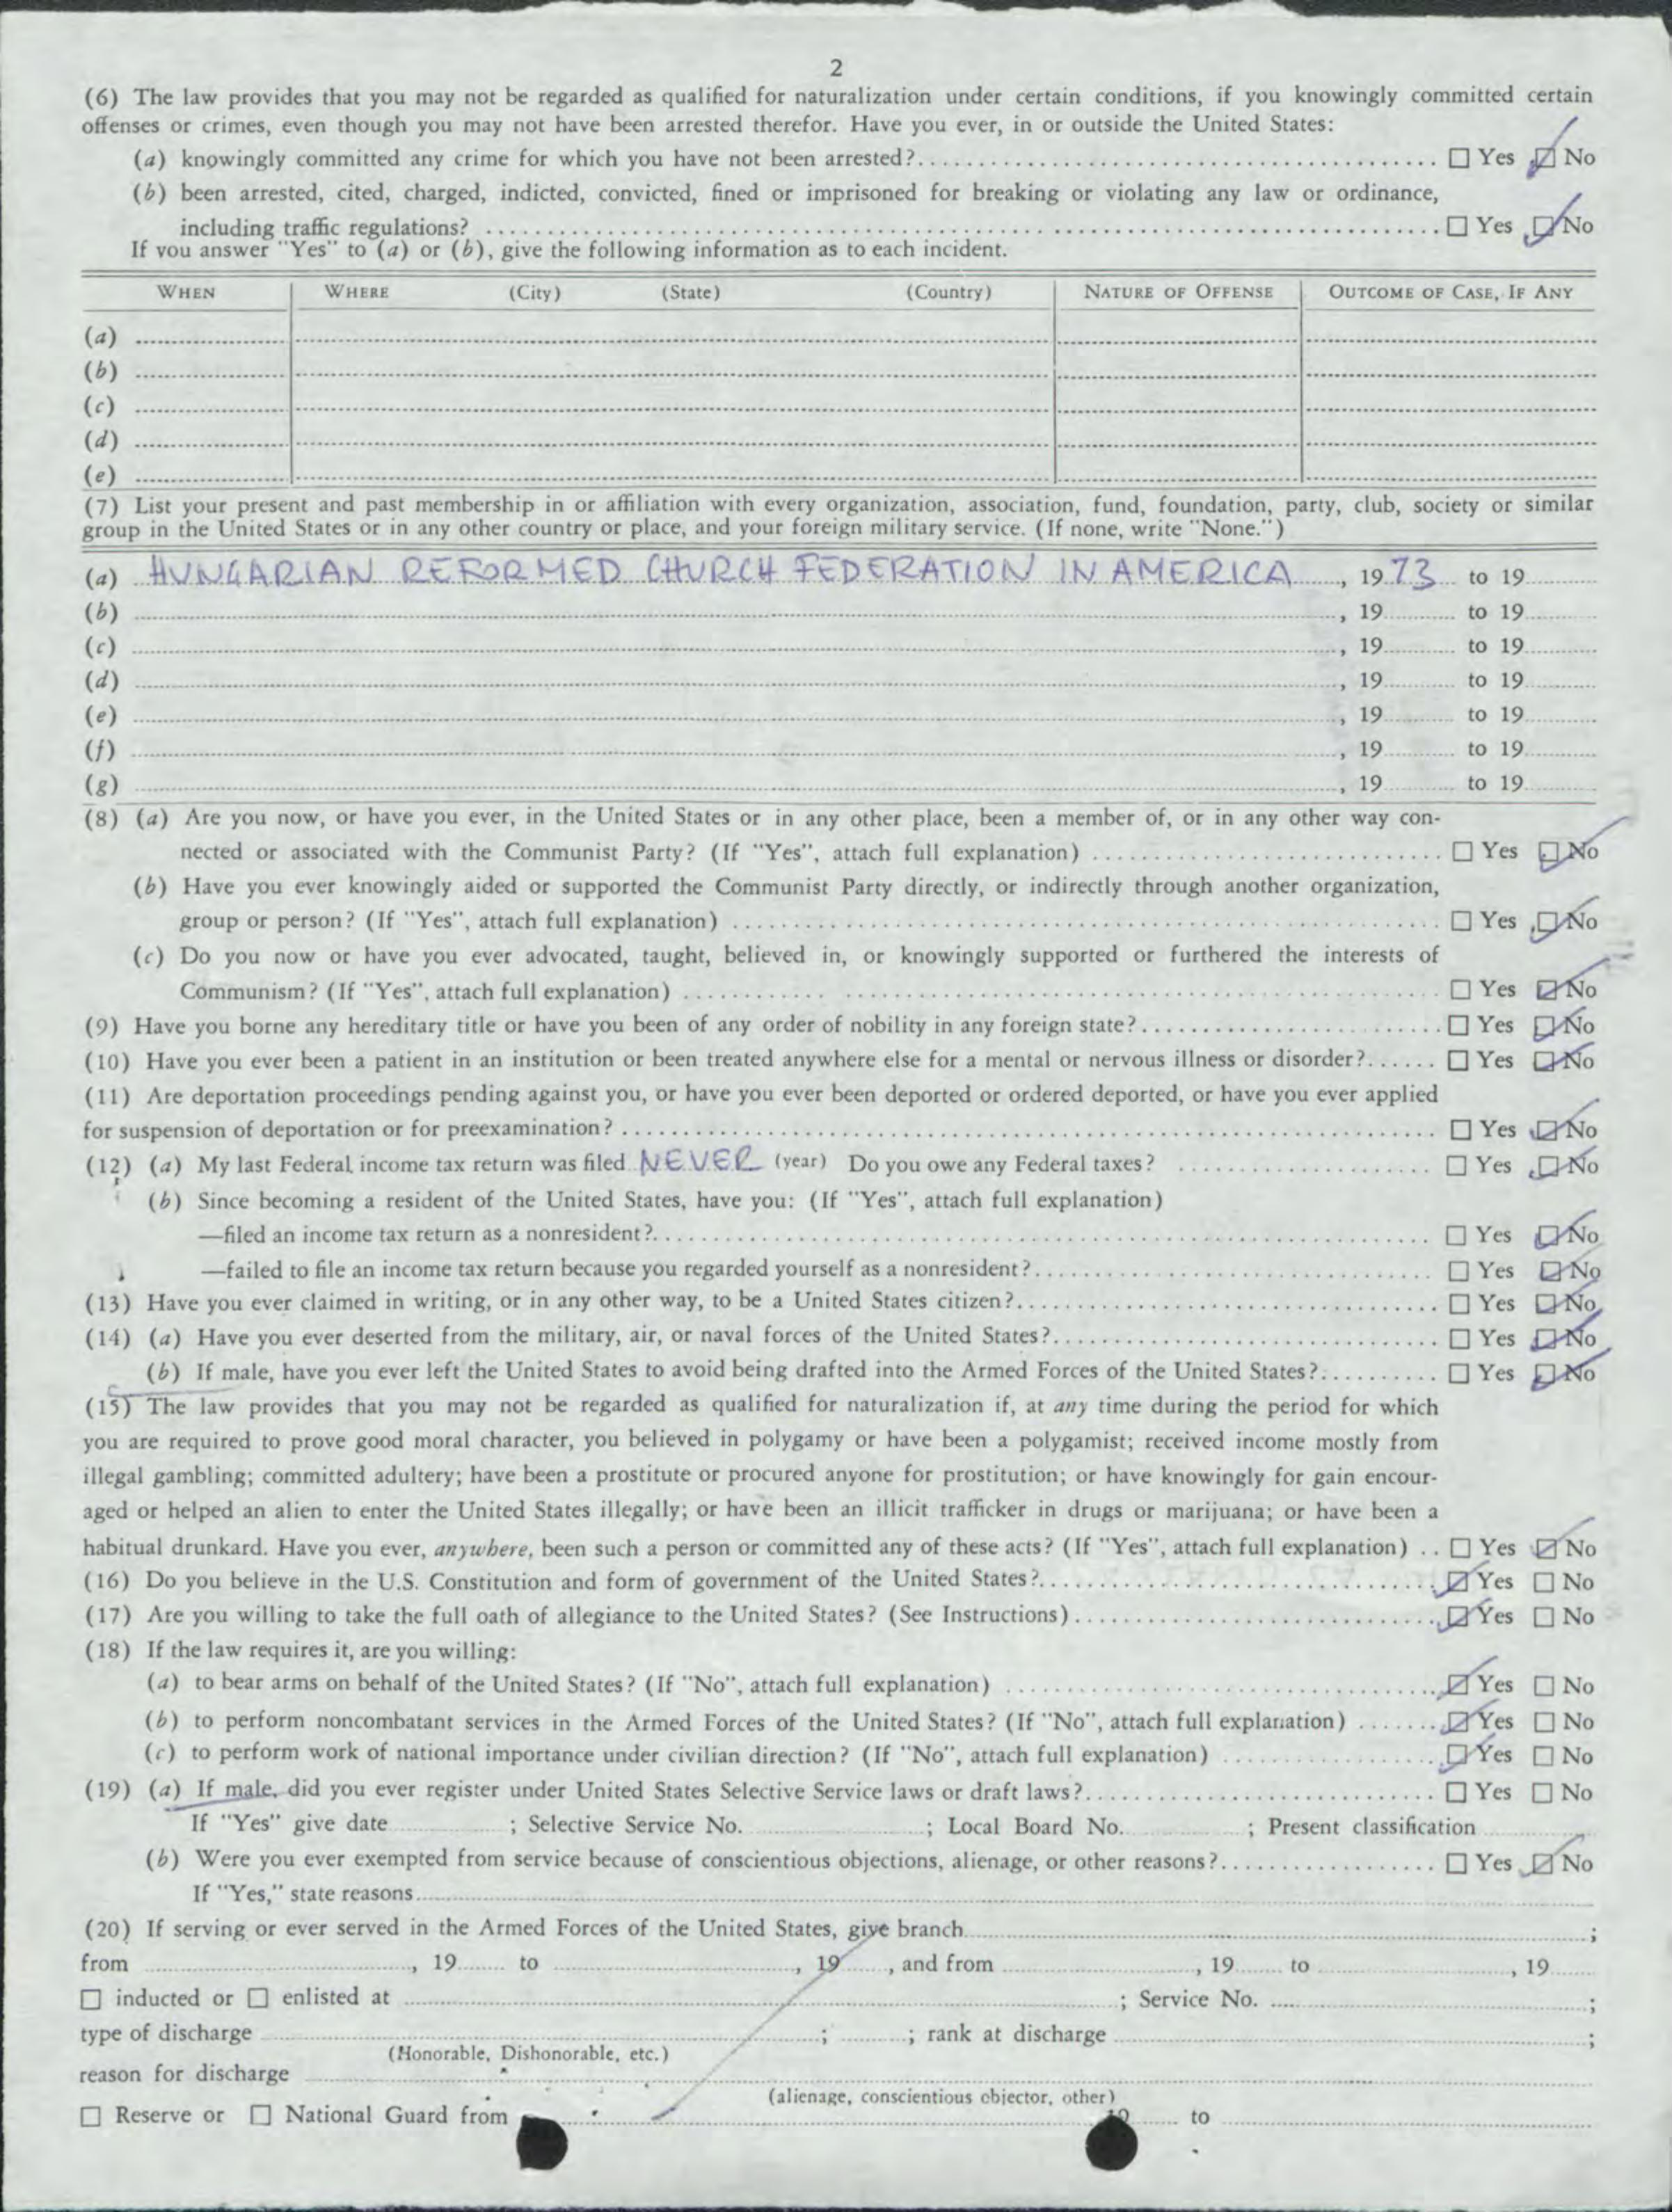 2
(6) The law provides that you may not be regarded as qualified for naturalization under certain conditions, if you knowingly committed certain
offenses or crimes, even though you may not have been arrested therefor. Have you ever, in or outside the United States:
(a) knowingly committed any crime for which you have not been arrested? ☐ Yes ☑ No
(b) been arrested, cited, charged, indicted, convicted, fined or imprisoned for breaking or violating any law or ordinance,
including traffic regulations? ☐ Yes ☑ No
If you answer "Yes" to (a) or (b), give the following information as to each incident.
WHEN WHERE (City) (State) (Country) NATURE OF OFFENSE OUTCOME OF CASE, IF ANY
(a)
(b)
(c)
(d)
(e)
(7) List your present and past membership in or affiliation with every organization, association, fund, foundation, party, club, society or similar
group in the United States or in any other country or place, and your foreign military service. (If none, write "None.")
(a) HUNGARIAN REFORMED CHURCH FEDERATION IN AMERICA, 1973 to 19
(b) , 19 to 19
(c) , 19 to 19
(d) , 19 to 19
(e) , 19 to 19
(f) , 19 to 19
(g) , 19 to 19
(8) (a) Are you now, or have you ever, in the United States or in any other place, been a member of, or in any other way con-
nected or associated with the Communist Party? (If "Yes", attach full explanation) ☐ Yes ☑ No
(b) Have you ever knowingly aided or supported the Communist Party directly, or indirectly through another organization,
group or person? (If "Yes", attach full explanation) ☐ Yes ☑ No
(c) Do you now or have you ever advocated, taught, believed in, or knowingly supported or furthered the interests of
Communism? (If "Yes", attach full explanation) ☐ Yes ☑ No
(9) Have you borne any hereditary title or have you been of any order of nobility in any foreign state? ☐ Yes ☑ No
(10) Have you ever been a patient in an institution or been treated anywhere else for a mental or nervous illness or disorder? ☐ Yes ☑ No
(11) Are deportation proceedings pending against you, or have you ever been deported or ordered deported, or have you ever applied
for suspension of deportation or for preexamination? ☐ Yes ☑ No
(12) (a) My last Federal income tax return was filed NEVER (year) Do you owe any Federal taxes? ☐ Yes ☑ No
(b) Since becoming a resident of the United States, have you: (If "Yes", attach full explanation)
—filed an income tax return as a nonresident? ☐ Yes ☑ No
—failed to file an income tax return because you regarded yourself as a nonresident? ☐ Yes ☑ No
(13) Have you ever claimed in writing, or in any other way, to be a United States citizen? ☐ Yes ☑ No
(14) (a) Have you ever deserted from the military, air, or naval forces of the United States? ☐ Yes ☑ No
(b) If male, have you ever left the United States to avoid being drafted into the Armed Forces of the United States? ☐ Yes ☑ No
(15) The law provides that you may not be regarded as qualified for naturalization if, at any time during the period for which
you are required to prove good moral character, you believed in polygamy or have been a polygamist; received income mostly from
illegal gambling; committed adultery; have been a prostitute or procured anyone for prostitution; or have knowingly for gain encour-
aged or helped an alien to enter the United States illegally; or have been an illicit trafficker in drugs or marijuana; or have been a
habitual drunkard. Have you ever, anywhere, been such a person or committed any of these acts? (If "Yes", attach full explanation) ☐ Yes ☑ No
(16) Do you believe in the U.S. Constitution and form of government of the United States? ☑ Yes ☐ No
(17) Are you willing to take the full oath of allegiance to the United States? (See Instructions) ☑ Yes ☐ No
(18) If the law requires it, are you willing:
(a) to bear arms on behalf of the United States? (If "No", attach full explanation) ☑ Yes ☐ No
(b) to perform noncombatant services in the Armed Forces of the United States? (If "No", attach full explanation) ☑ Yes ☐ No
(c) to perform work of national importance under civilian direction? (If "No", attach full explanation) ☑ Yes ☐ No
(19) (a) If male, did you ever register under United States Selective Service laws or draft laws? ☐ Yes ☐ No
If "Yes" give date ; Selective Service No. ; Local Board No. ; Present classification
(b) Were you ever exempted from service because of conscientious objections, alienage, or other reasons? ☐ Yes ☑ No
If "Yes," state reasons
(20) If serving or ever served in the Armed Forces of the United States, give branch ;
from , 19 to , 19 , and from , 19 to , 19
☐ inducted or ☐ enlisted at ; Service No. ;
type of discharge ; ; rank at discharge ;
(Honorable, Dishonorable, etc.)
reason for discharge
(alienage, conscientious objector, other)
☐ Reserve or ☐ National Guard from 19 to